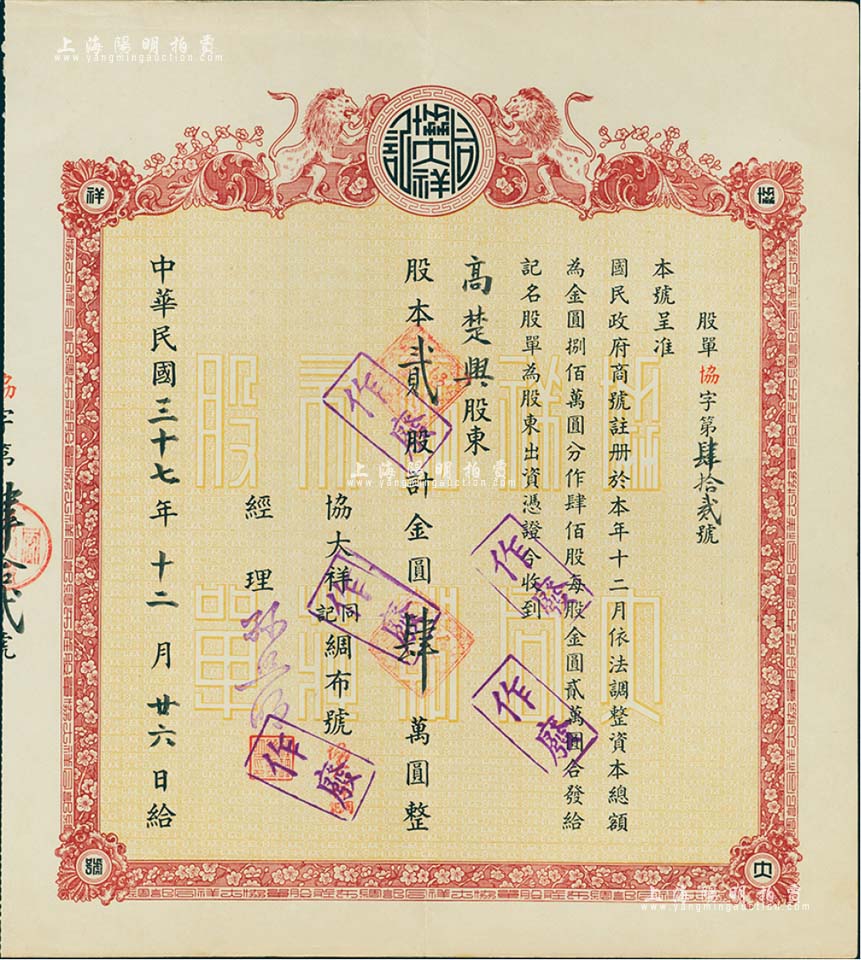 上海陽明拍賣
www.yangmingauction.com
協大祥
記
祥
協
股單協字第肆拾貳號
本號呈准
國民政府商號註册於本年十二月依法調整資本總額
為金圓捌佰萬圓分作肆佰股每股金圓貳萬圓合發給
記名股單為股東出資憑證今收到
高楚興股東
股本貳股計金圓肆萬圓整
協大祥同記綢布號
經理
中華民國三十七年十二月廿六日給
作廢
作廢
作廢
作廢
作廢
上海陽明拍賣
www.yangmingauction.com
協字第肆拾貳號
號
大
上海陽明拍賣
www.yangmingauction.com